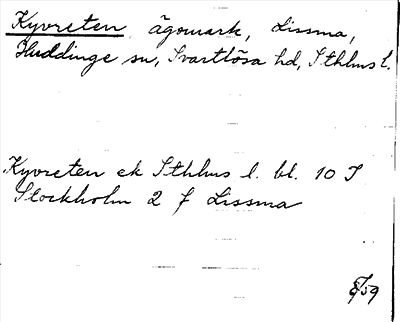 Kyvreten ägomark, Lissma,
Huddinge sn, Svartlösa hd, Sthlms l.
Kyvreten ek Sthlms l. bl. 10 I
Stockholm 2 f Lissma
59